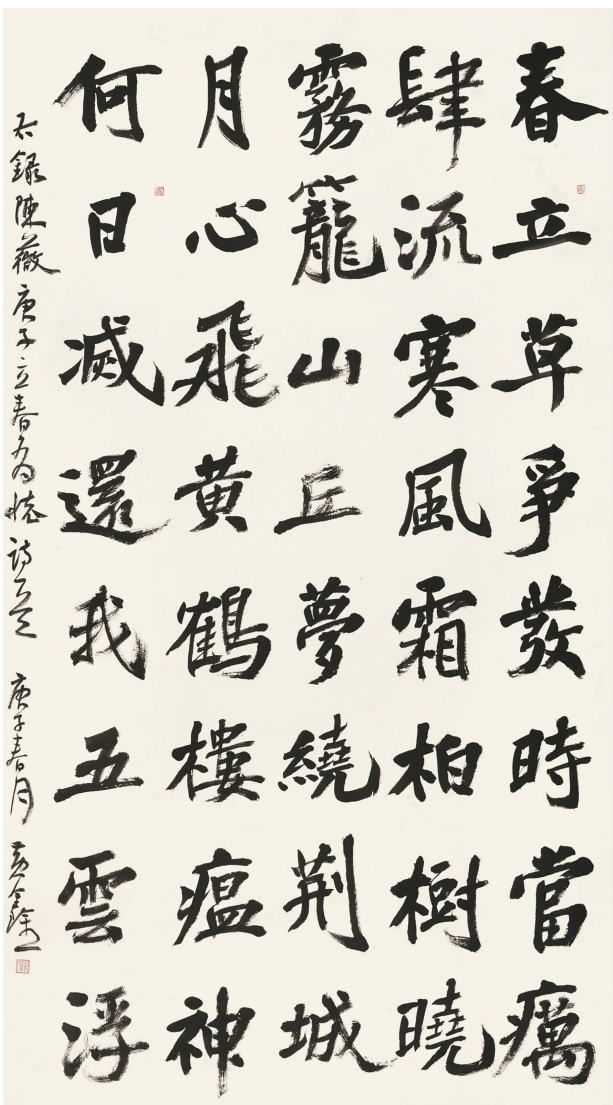 春立草爭發時當癘
肆流寒風霜柏樹曉
霧籠山丘夢繞荊城
月心飛黃鶴樓瘟神
何日滅還我五雲浮
右錄陳薇庚子立春為懷詩一首 庚子春月